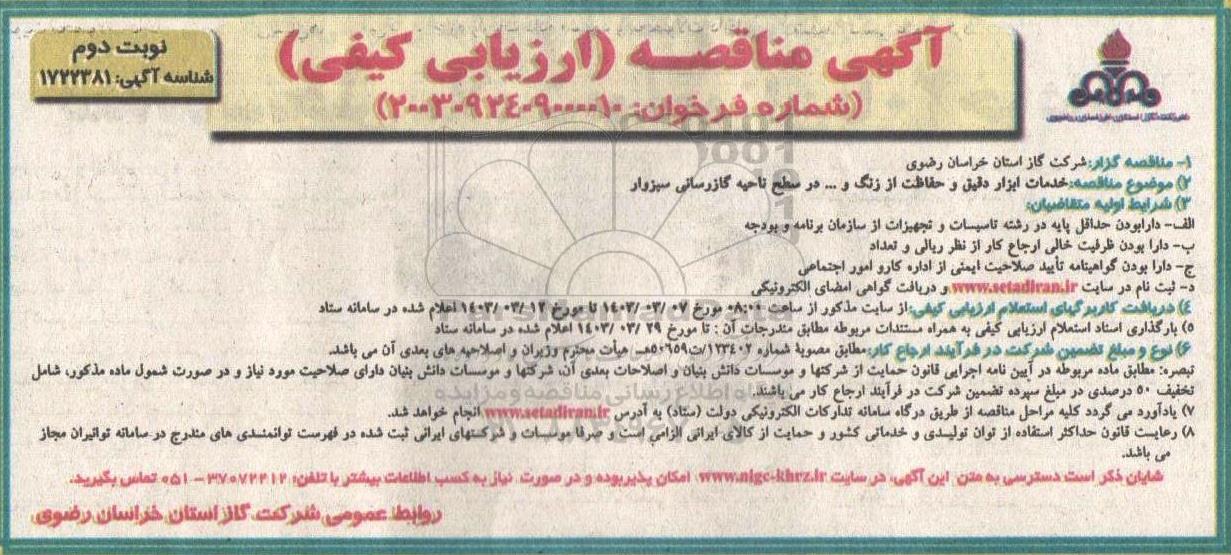 آگهی مناقصه (ارزیابی کیفی)
(شماره فرخوان: ۲۰۰۳۰۹۲٤۰۹۰۰۰۰۱۰)
نوبت دوم
شناسه آگهی: ۱۷۲۲۳۸۱
شرکت گاز استان خراسان رضوی
۱- مناقصه گزار: شرکت گاز استان خراسان رضوی
۲) موضوع مناقصه: خدمات ابزار دقیق و حفاظت از زنگ و ... در سطح ناحیه گازرسانی سبزوار
۳) شرایط اولیه متقاضیان:
الف- دارابودن حداقل پایه در رشته تاسیسات و تجهیزات از سازمان برنامه و بودجه
ب- دارا بودن ظرفیت خالی ارجاع کار از نظر ریالی و تعداد
ج- دارا بودن گواهینامه تأیید صلاحیت ایمنی از اداره کارو امور اجتماعی
د- ثبت نام در سایت www.setadiran.ir و دریافت گواهی امضای الکترونیکی
٤) دریافت کاربرگهای استعلام ارزیابی کیفی: از سایت مذکور از ساعت ۰۸:۰۰ مورخ ۱٤۰۳/۰۳/۰۷ تا مورخ ۱٤۰۳/۰۳/۱۲ اعلام شده در سامانه ستاد
۵) بارگذاری اسناد استعلام ارزیابی کیفی به همراه مستندات مربوطه مطابق مندرجات آن : تا مورخ ۱٤۰۳/۰۳/۲۹ اعلام شده در سامانه ستاد
۶) نوع و مبلغ تضمین شرکت در فرآیند ارجاع کار: مطابق مصوبۀ شماره ۱۲۳٤۰۲/ت۵۰۶۵۹هـ هیأت محترم وزیران و اصلاحیه های بعدی آن می باشد.
تبصره: مطابق ماده مربوطه در آیین نامه اجرایی قانون حمایت از شرکتها و موسسات دانش بنیان و اصلاحات بعدی آن، شرکتها و موسسات دانش بنیان دارای صلاحیت مورد نیاز و در صورت شمول ماده مذکور، شامل
تخفیف ۵۰ درصدی در مبلغ سپرده تضمین شرکت در فرآیند ارجاع کار می باشند.
۷) یادآورد می گردد کلیه مراحل مناقصه از طریق درگاه سامانه تدارکات الکترونیکی دولت (ستاد) به آدرس www.setadiran.ir انجام خواهد شد.
۸) رعایست قانون حداکثر استفاده از توان تولیدی و خدماتی کشور و حمایت از کالای ایرانی الزامی است و صرفا موسسات و شرکتهای ایرانی ثبت شده در فهرست توانمندی های مندرج در سامانه توانیران مجاز
می باشد.
شایان ذکر است دسترسی به متن این آگهی، در سایت www.nigc-khrz.ir امکان پذیربوده و در صورت نیاز به کسب اطلاعات بیشتر با تلفن: ۳۷۰۷۲۲۱۲ - ۰۵۱ تماس بگیرید.
روابط عمومی شرکت گاز استان خراسان رضوی